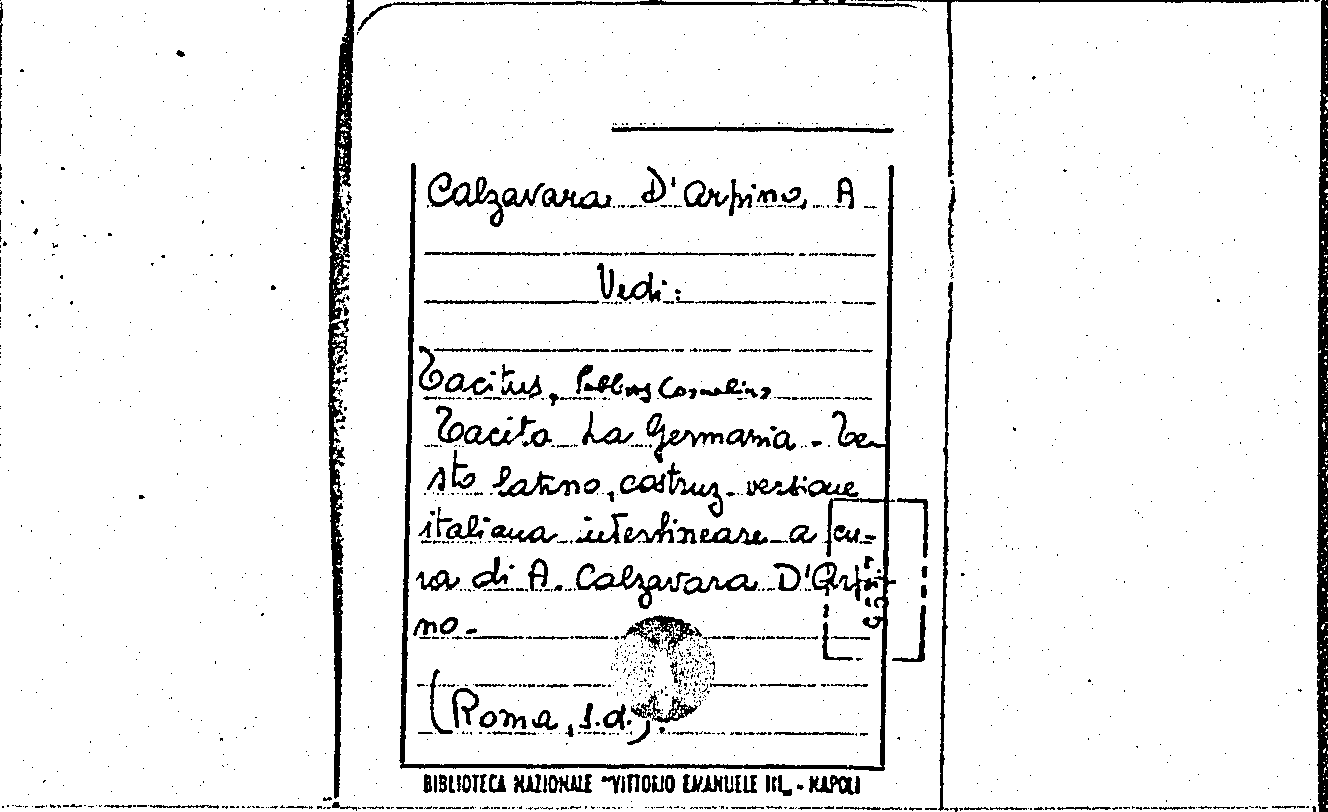 Calzavara D'Arpino, A
Vedi:
Tacitus, Publius Cornelius
Tacito La Germania - Te-
sto latino, costruz. versione
italiana interlineare a cu-
ra di A. Calzavara D'Arpi
no-
(Roma, s.d.).
BIBLIOTECA NAZIONALE "VITTORIO EMANUELE III_ - NAPOLI